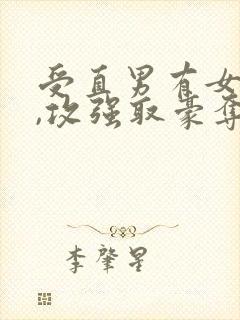 受直男有女
,攻强取豪夺
李肇星